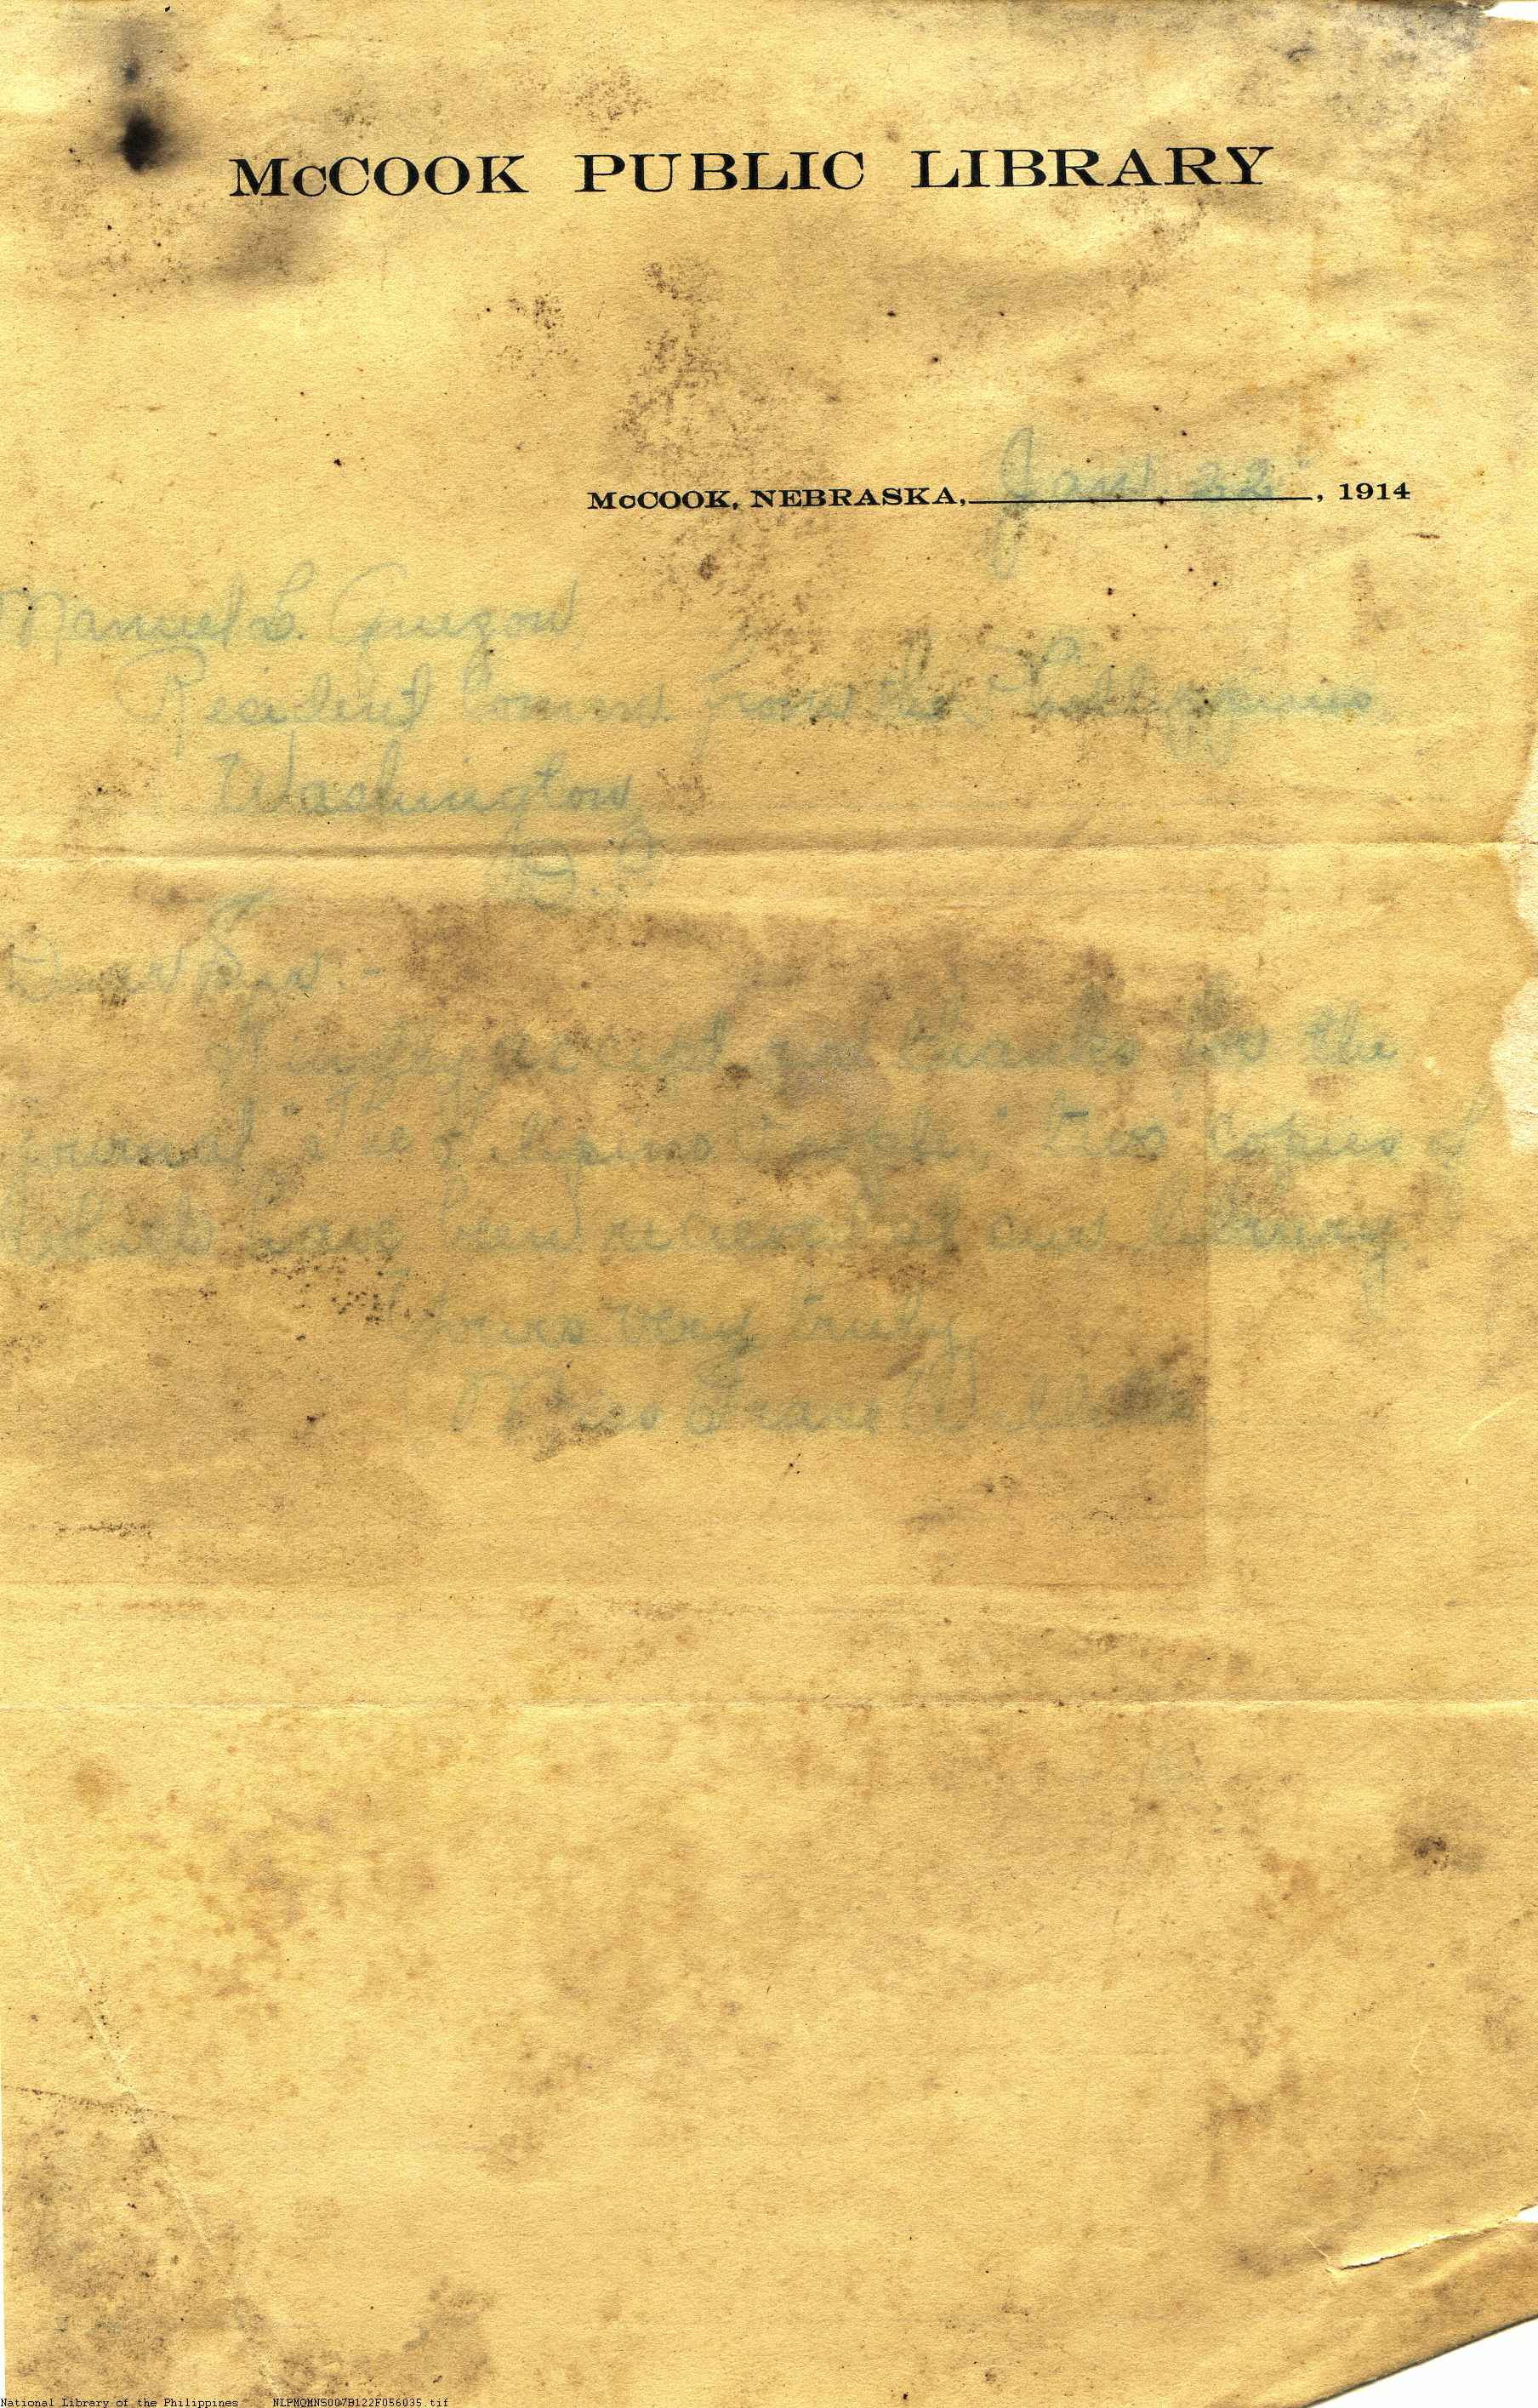 McCOOK PUBLIC LIBRARY
McCOOK, NEBRASKA, Jan. 22, 1914
Manuel L. Quezon
Resident Comm. from the Philippines
Washington
D. C.
Dear Sir:-
Kindly accept our thanks for the
journal "The Filipino People," two copies of
which have been received at our library.
Yours very truly,
Miss Grace
National Library of the Philippines NLPMQMNS007B122F056035.tif